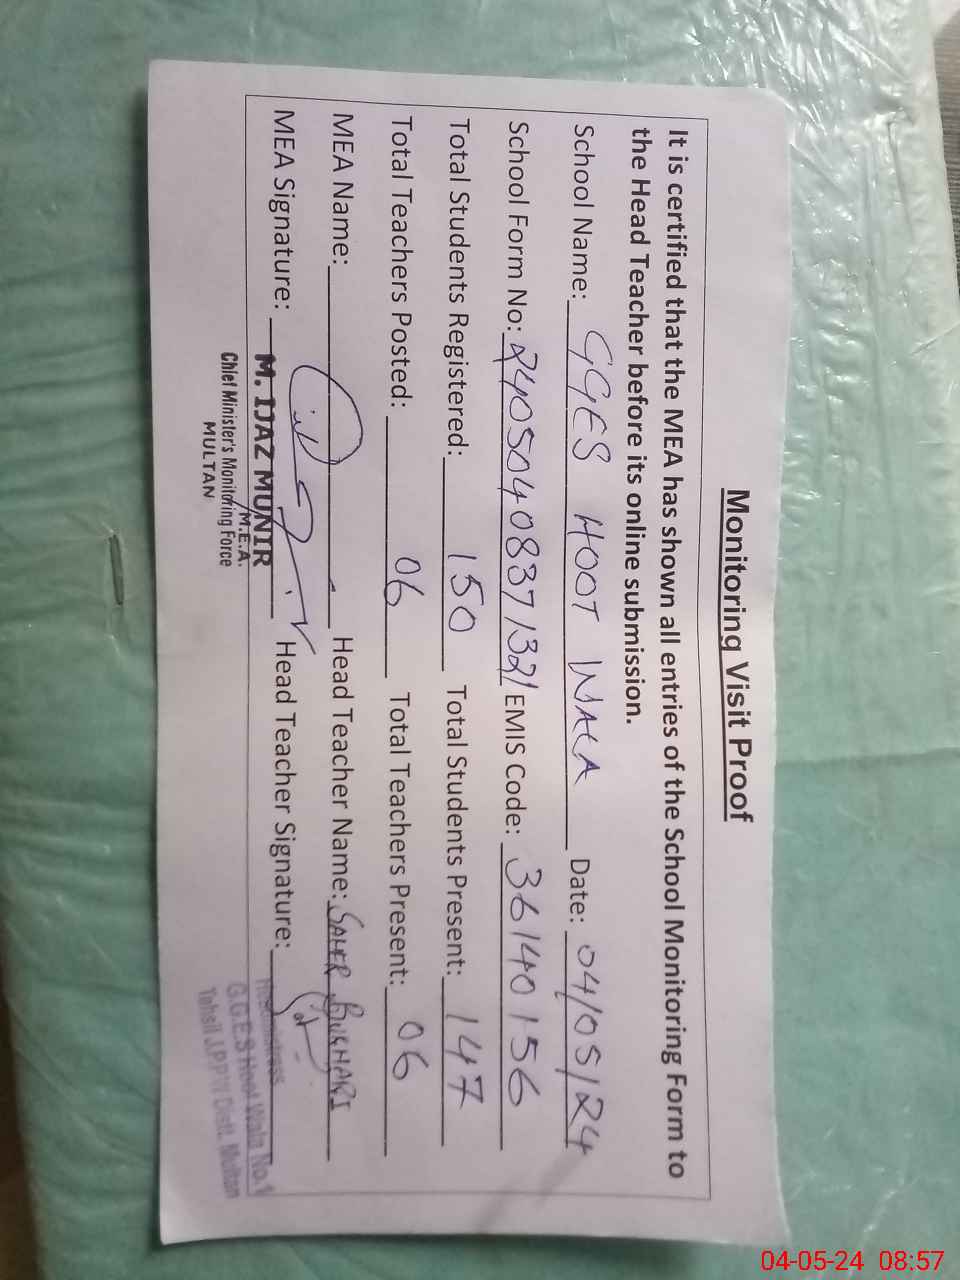 Monitoring Visit Proof
It is certified that the MEA has shown all entries of the School Monitoring Form to
the Head Teacher before its online submission.
School Name: GGES HOOT WALA Date: 04/05/24
School Form No: 24050408371321 EMIS Code: 36140156
Total Students Registered: 150 Total Students Present: 147
Total Teachers Posted: 06 Total Teachers Present: 06
MEA Name: Head Teacher Name: SAHER BUKHARI
MEA Signature: Head Teacher Signature:
M. IJAZ MUNIR
M.E.A.
Chief Minister's Monitoring Force
MULTAN
Headmistress
G.G.E.S Hoot Wala No.1
Tehsil J.P.P.W Distt. Multan
04-05-24 08:57